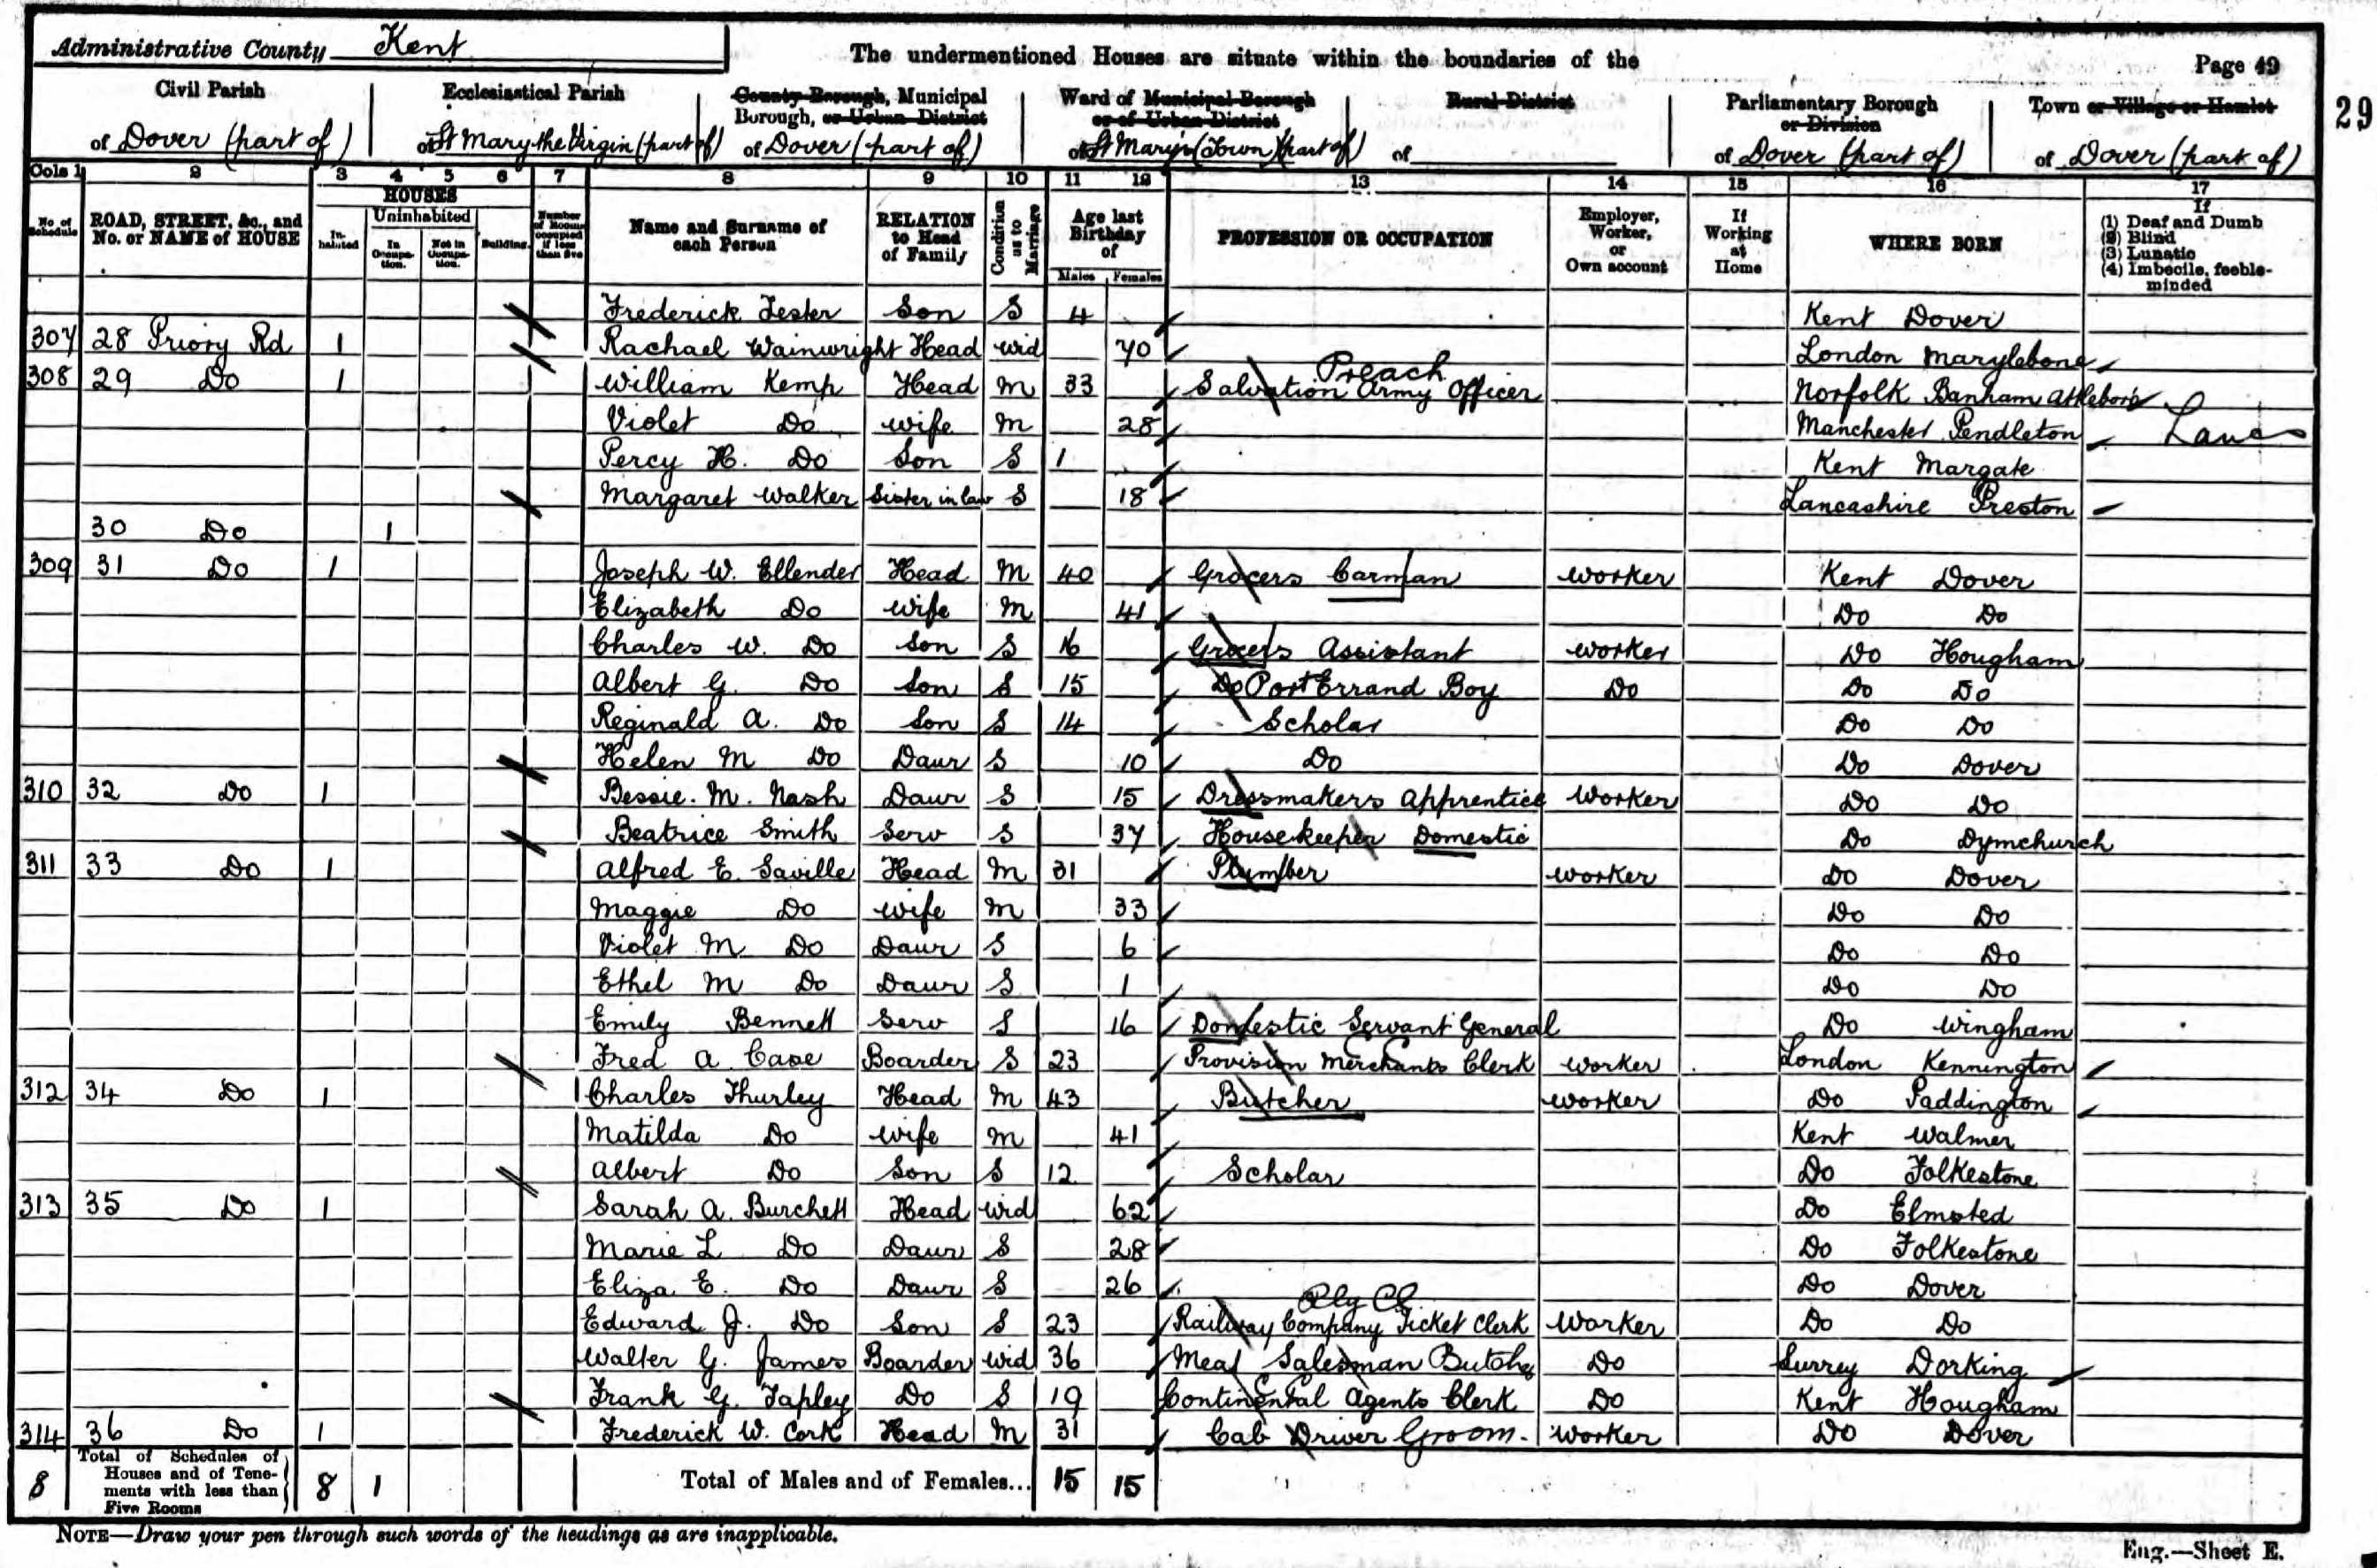 Administrative County Kent
The undermentioned Houses are situate within the boundaries of the
Page 49
Civil Parish
of Dover (part of)
Ecclesiastical Parish
of St Mary the Virgin (part of)
County Borough, Municipal
Borough, or Urban District
of Dover (part of)
Ward of Municipal Borough
or of Urban District
of St Mary's (Town) (part of)
Rural District
of
Parliamentary Borough
or Division
of Dover (part of)
Town or Village or Hamlet
of Dover (part of)
29
Cols 1 2 3 4 5 6 7 8 9 10 11 12 13 14 15 16 17
No. of Schedule
ROAD, STREET, &c., and No. or NAME of HOUSE
HOUSES
In-habited
Uninhabited
In Occupa-tion.
Not in Occupa-tion.
Building.
Number of Rooms occupied if less than five
Name and Surname of each Person
RELATION to Head of Family
Condition as to Marriage
Age last Birthday of
Males Females
PROFESSION OR OCCUPATION
Employer, Worker, or Own account
If Working at Home
WHERE BORN
If
(1) Deaf and Dumb
(2) Blind
(3) Lunatic
(4) Imbecile, feeble-minded
Frederick Lester Son S 4 Kent Dover
307 28 Priory Rd 1 Rachael Wainwright Head Wid 70 London Marylebone
Preach
308 29 Do 1 William Kemp Head M 33 Salvation Army Officer Norfolk Banham Attleboro
Violet Do wife M 28 Manchester Pendleton Lancs
Percy H. Do Son S 1 Kent Margate
Margaret Walker Sister in law S 18 Lancashire Preston
30 Do 1
309 31 Do 1 Joseph W. Ellender Head M 40 Grocers Carman worker Kent Dover
Elizabeth Do wife M 41 Do Do
Charles W. Do Son S 16 Grocers Assistant worker Do Hougham
Albert G. Do Son S 15 Do Port Errand Boy Do Do Do
Reginald A. Do Son S 14 Scholar Do Do
Helen M Do Daur S 10 Do Do Dover
310 32 Do 1 Bessie. M. Nash Daur S 15 Dressmakers Apprentice Worker Do Do
Beatrice Smith Serv S 37 Housekeeper Domestic Do Dymchurch
311 33 Do 1 Alfred E. Saville Head M 31 Plumber worker Do Dover
Maggie Do wife M 33 Do Do
Violet M Do Daur S 6 Do Do
Ethel M Do Daur S 1 Do Do
Emily Bennett Serv S 16 Domestic Servant General Do Wingham
Fred A Case Boarder S 23 Provision Merchants Clerk worker London Kennington
312 34 Do 1 Charles Thurley Head M 43 Butcher worker Do Paddington
Matilda Do wife M 41 Kent Walmer
Albert Do Son S 12 Scholar Do Folkestone
313 35 Do 1 Sarah A. Burchett Head Wid 62 Do Elmsted
Marie L Do Daur S 28 Do Folkestone
Eliza E. Do Daur S 26 Do Dover
Rly Cl
Edward J. Do Son S 23 Railway Company Ticket Clerk Worker Do Do
Walter G. James Boarder Wid 36 Meat Salesman Butcher Do Surrey Dorking
Frank G. Tapley Do S 19 Continental Agents Clerk Do Kent Hougham
314 36 Do 1 Frederick W. Cork Head M 31 Cab Driver Groom. Worker Do Dover
8 Total of Schedules of Houses and of Tene-ments with less than Five Rooms 8 1 Total of Males and of Females... 15 15
NOTE—Draw your pen through such words of the headings as are inapplicable.
Eng.—Sheet E.